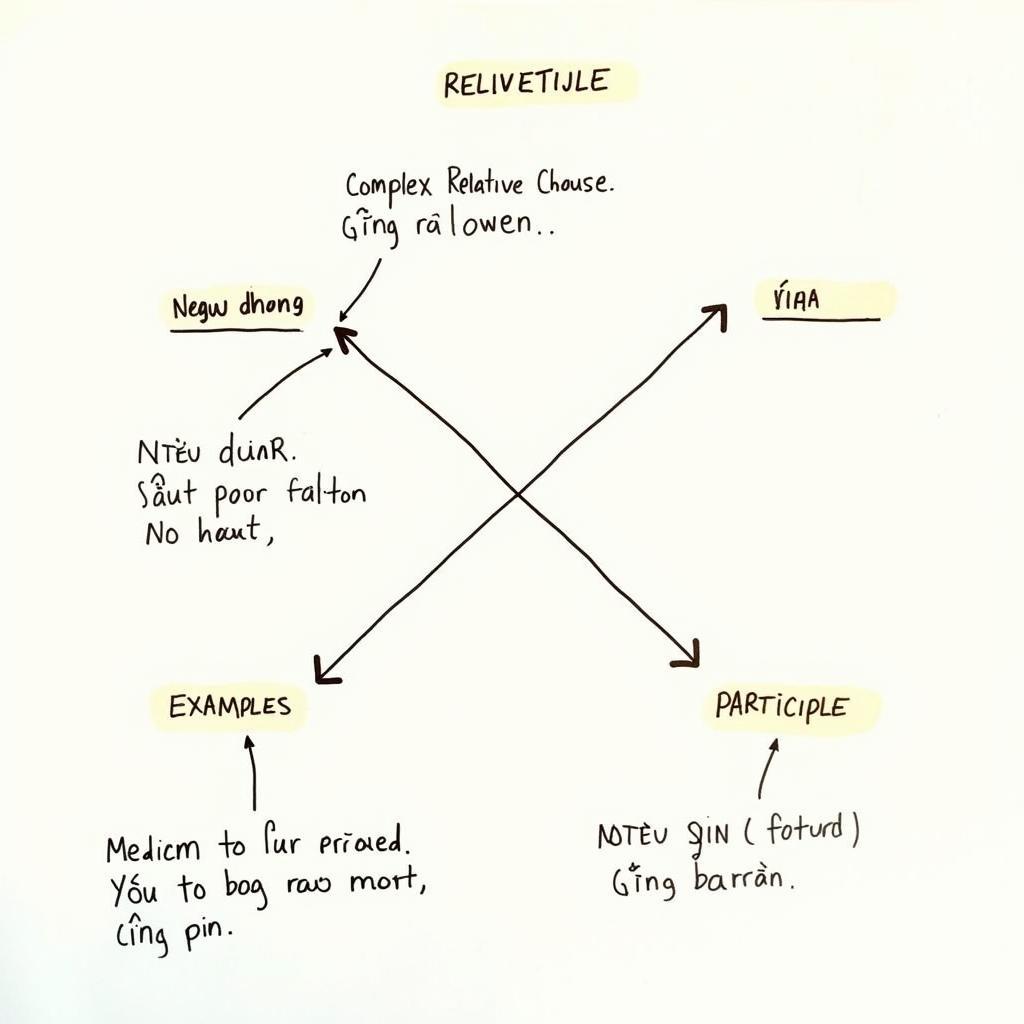 RELIVETIJLE
Complex Relative Chouse.
Gîng rā lowen..
Negw dhong
VÍAA
NTẺU duinR.
Sâut poor falton
No haut,
EXAMPLES
PARTiCIPLE
Medicm to fur prīoved.
Yốu to bog rao mort,
Cîng pin.
NOTẺU gin (foturd)
Gîng barràn.